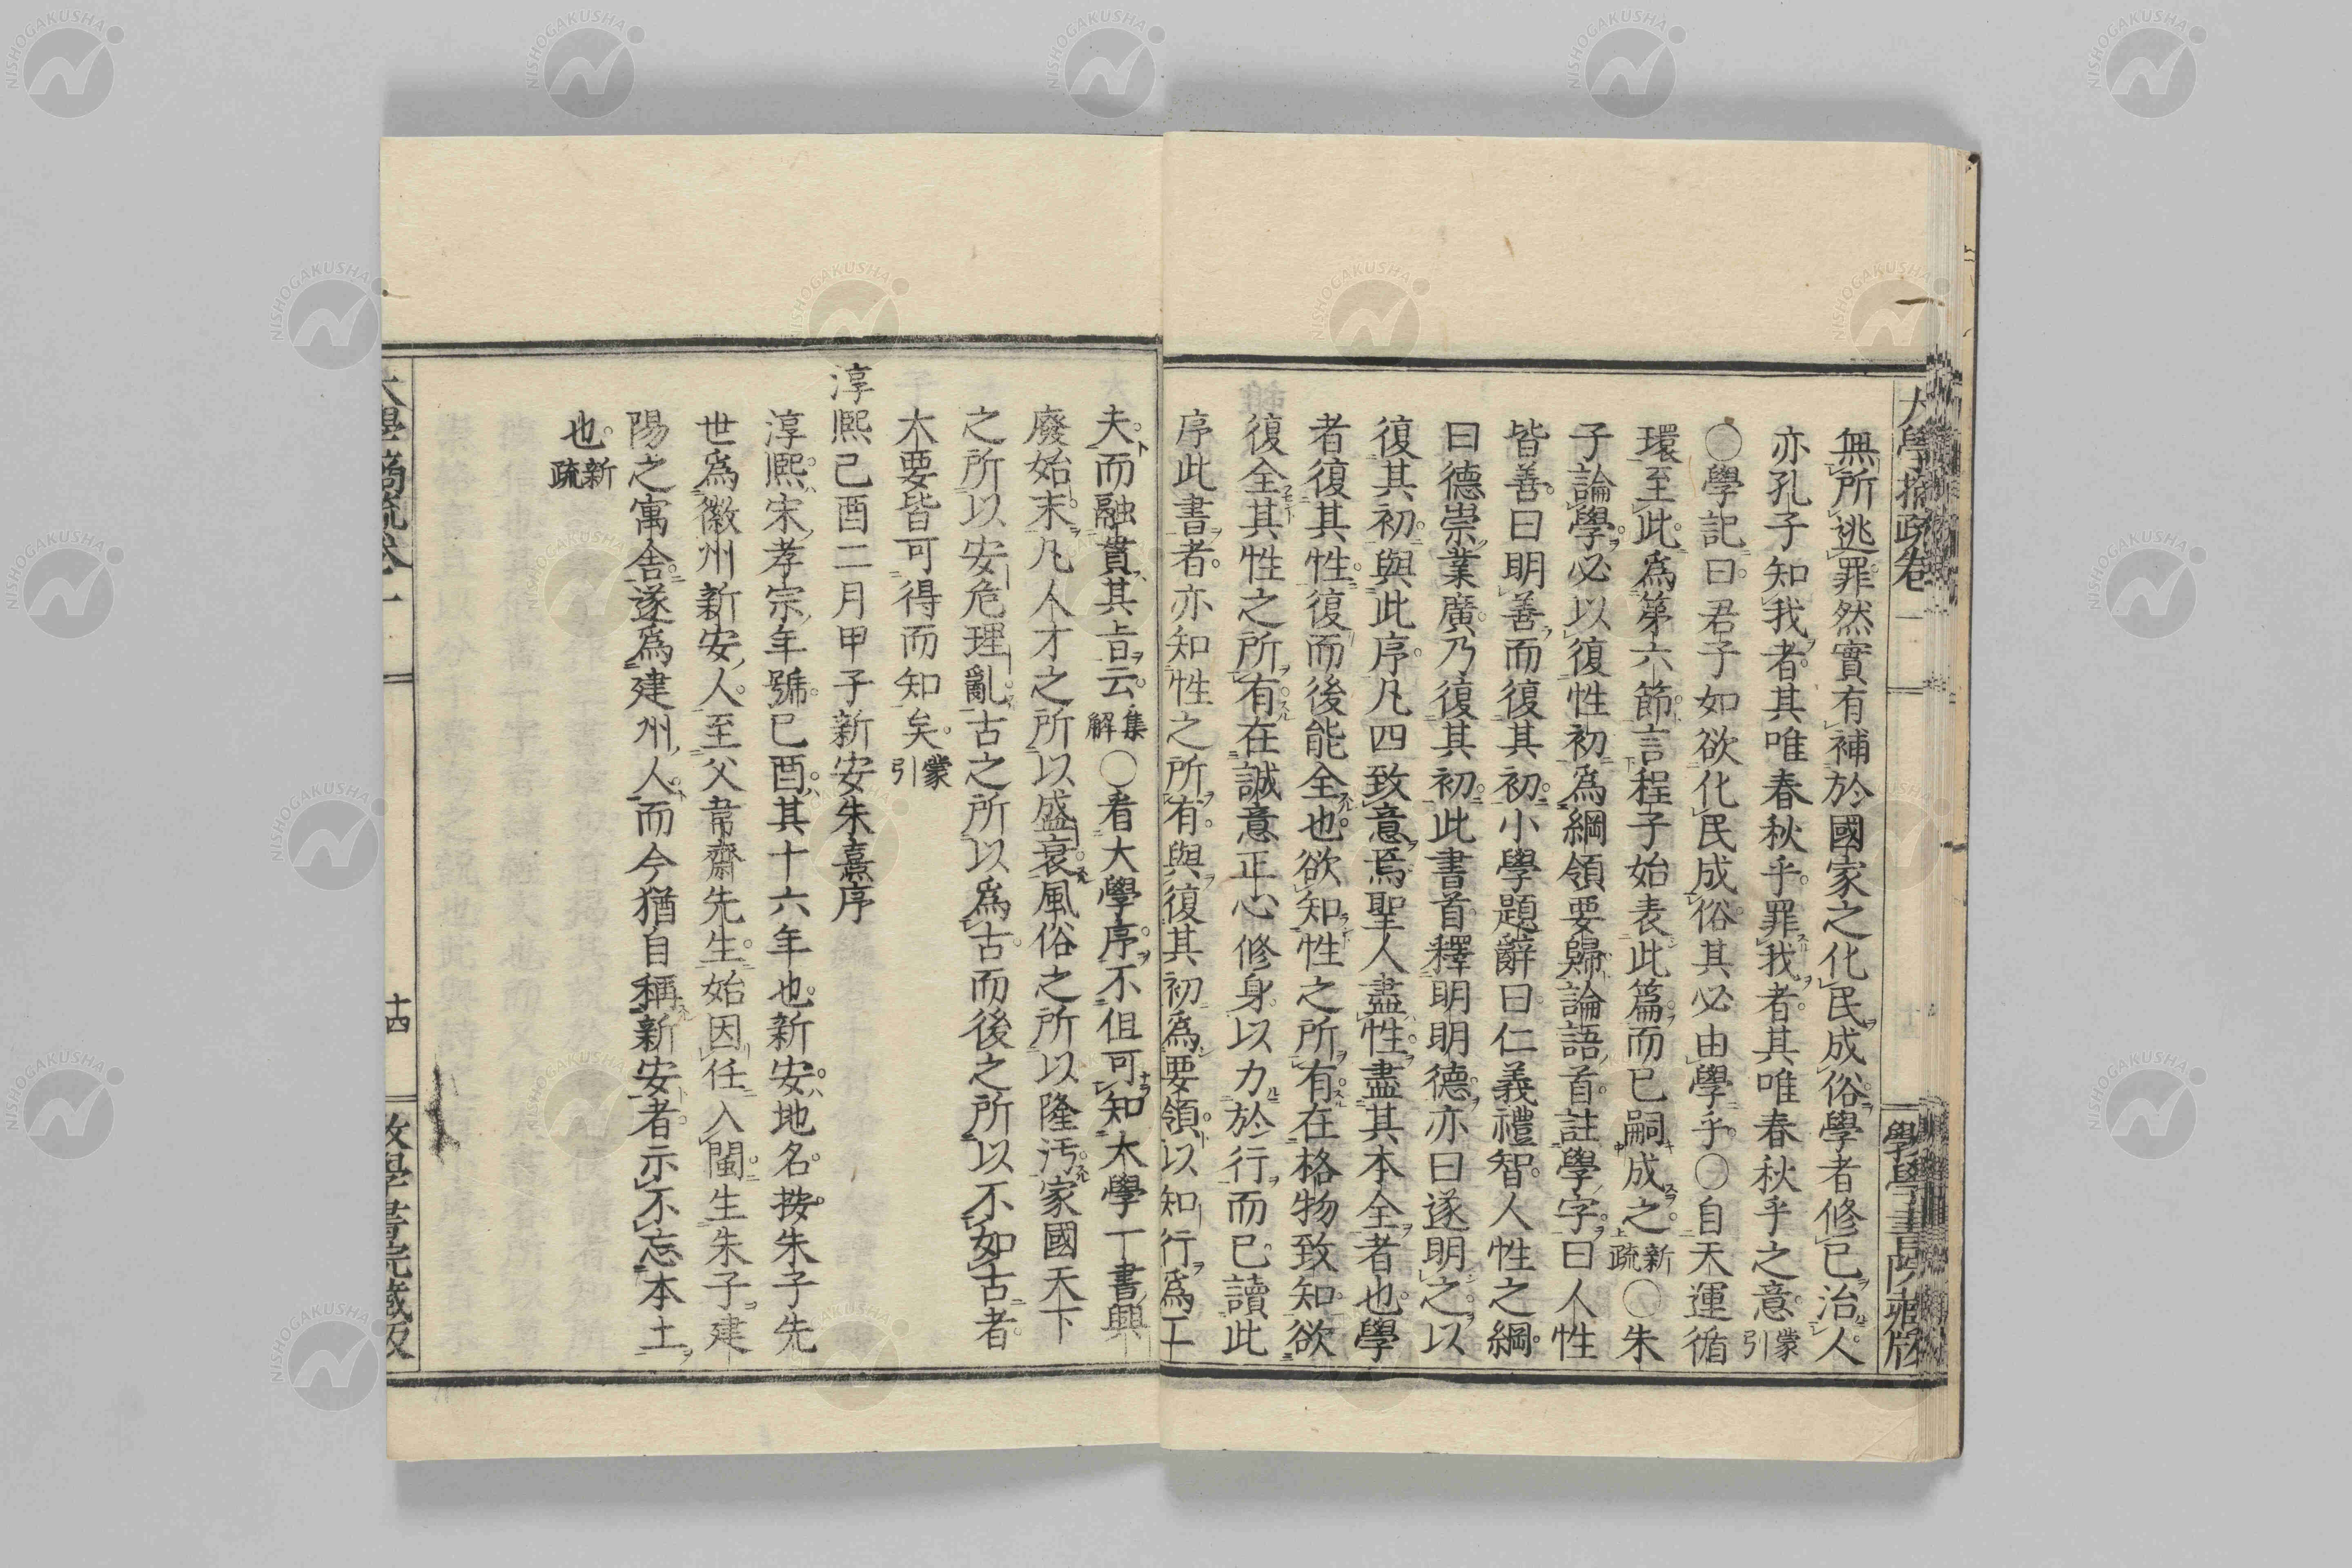 無所逃罪然實有補於國家之化民成俗學者修已治人
亦孔子知我者其唯春秋乎罪我者其唯春秋乎之意蒙引
○學記曰君子如欲化民成俗其必由學乎○自天運循
環至此爲第六節言程子始表此篇而已嗣成之新疏○朱
子論學必以復性初爲綱領要歸論語首註學字曰人性
皆善曰明善而復其初小學題辭曰仁義禮智人性之綱
曰德崇業廣乃復其初此書首釋明明德亦曰遂明之以
復其初與此序凡四致意焉聖人盡性盡其本全者也學
者復其性復而後能全也欲知性之所有在格物致知欲
復全其性之所有在誠意正心修身以力於行而已讀此
序此書者亦知性之所有與復其初爲要領以知行爲工
夫而融貫其旨云集解○看大學序不但可知大學一書興
廢始末凡人才之所以盛衰風俗之所以隆汚家國天下
之所以安危理亂古之所以爲古而後之所以不如古者
大要皆可得而知矣蒙引
淳熙己酉二月甲子新安朱熹序
淳熙宋孝宗年號已酉其十六年也新安地名按朱子先
世爲徽州新安人至父韋齋先生始因任入閩生朱子建
陽之寓舍遂爲建州人而今猶自稱新安者示不忘本土
也新疏
大學摘疏卷一
十四
敎學書院藏版